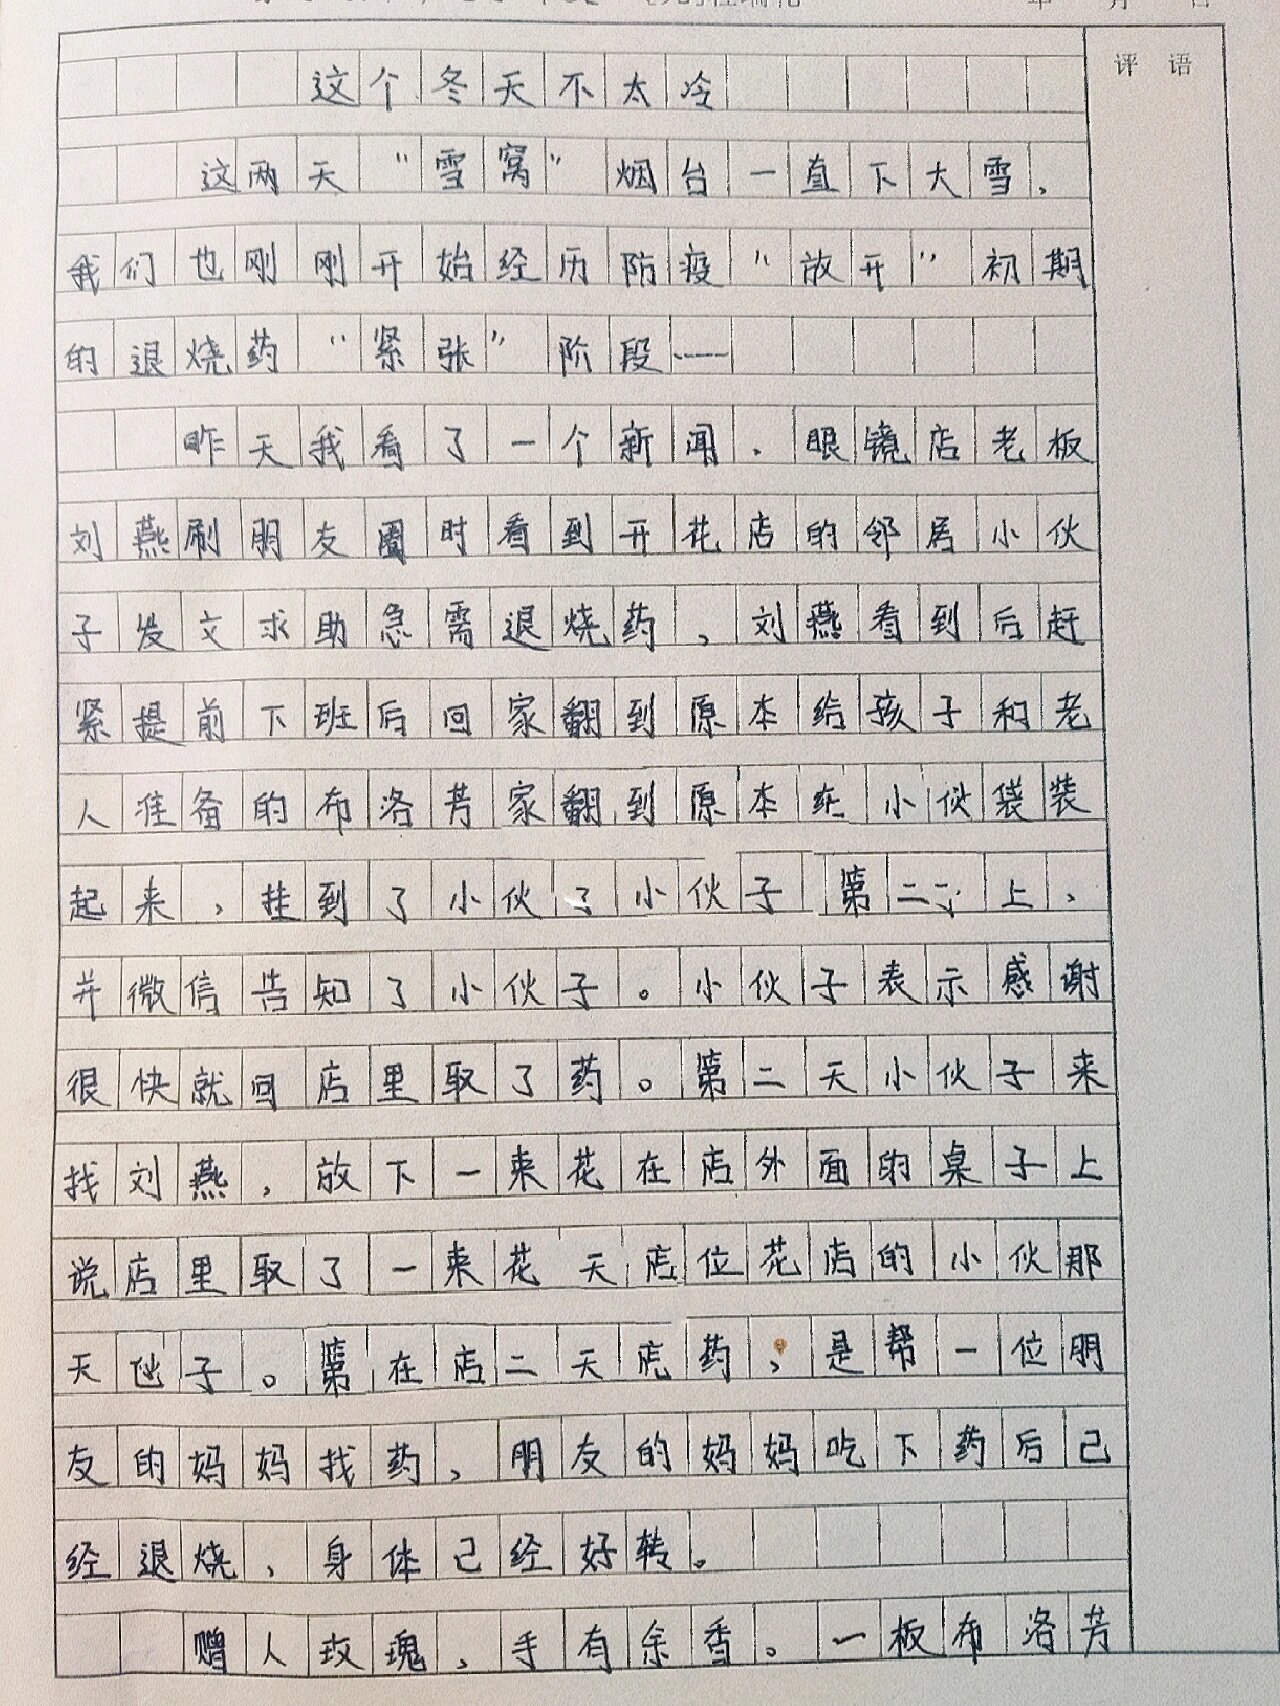 评语
这个冬天不太冷
这两天“雪窝”烟台一直下大雪,
我们也刚刚开始经历防疫“放开”初期
的退烧药“紧张”阶段……
昨天我看了一个新闻、眼镜店老板
刘燕刷朋友圈时看到开花店的邻居小伙
子发文求助急需退烧药,刘燕看到后赶
紧提前下班后回家翻到原本给孩子和老
人准备的布洛芬家翻到原本在小伙袋装
起来,挂到了小伙了小伙子第二子上,
并微信告知了小伙子。小伙子表示感谢
很快就回店里取了药。第二天小伙子来
找刘燕,放下一束花在店外面的桌子上
说店里取了一束花天店位花店的小伙那
天伙子。第在店二天店药,是帮一位朋
友的妈妈找药,朋友的妈妈吃下药后已
经退烧,身体已经好转。
赠人玫瑰,手有余香。一板布洛芬